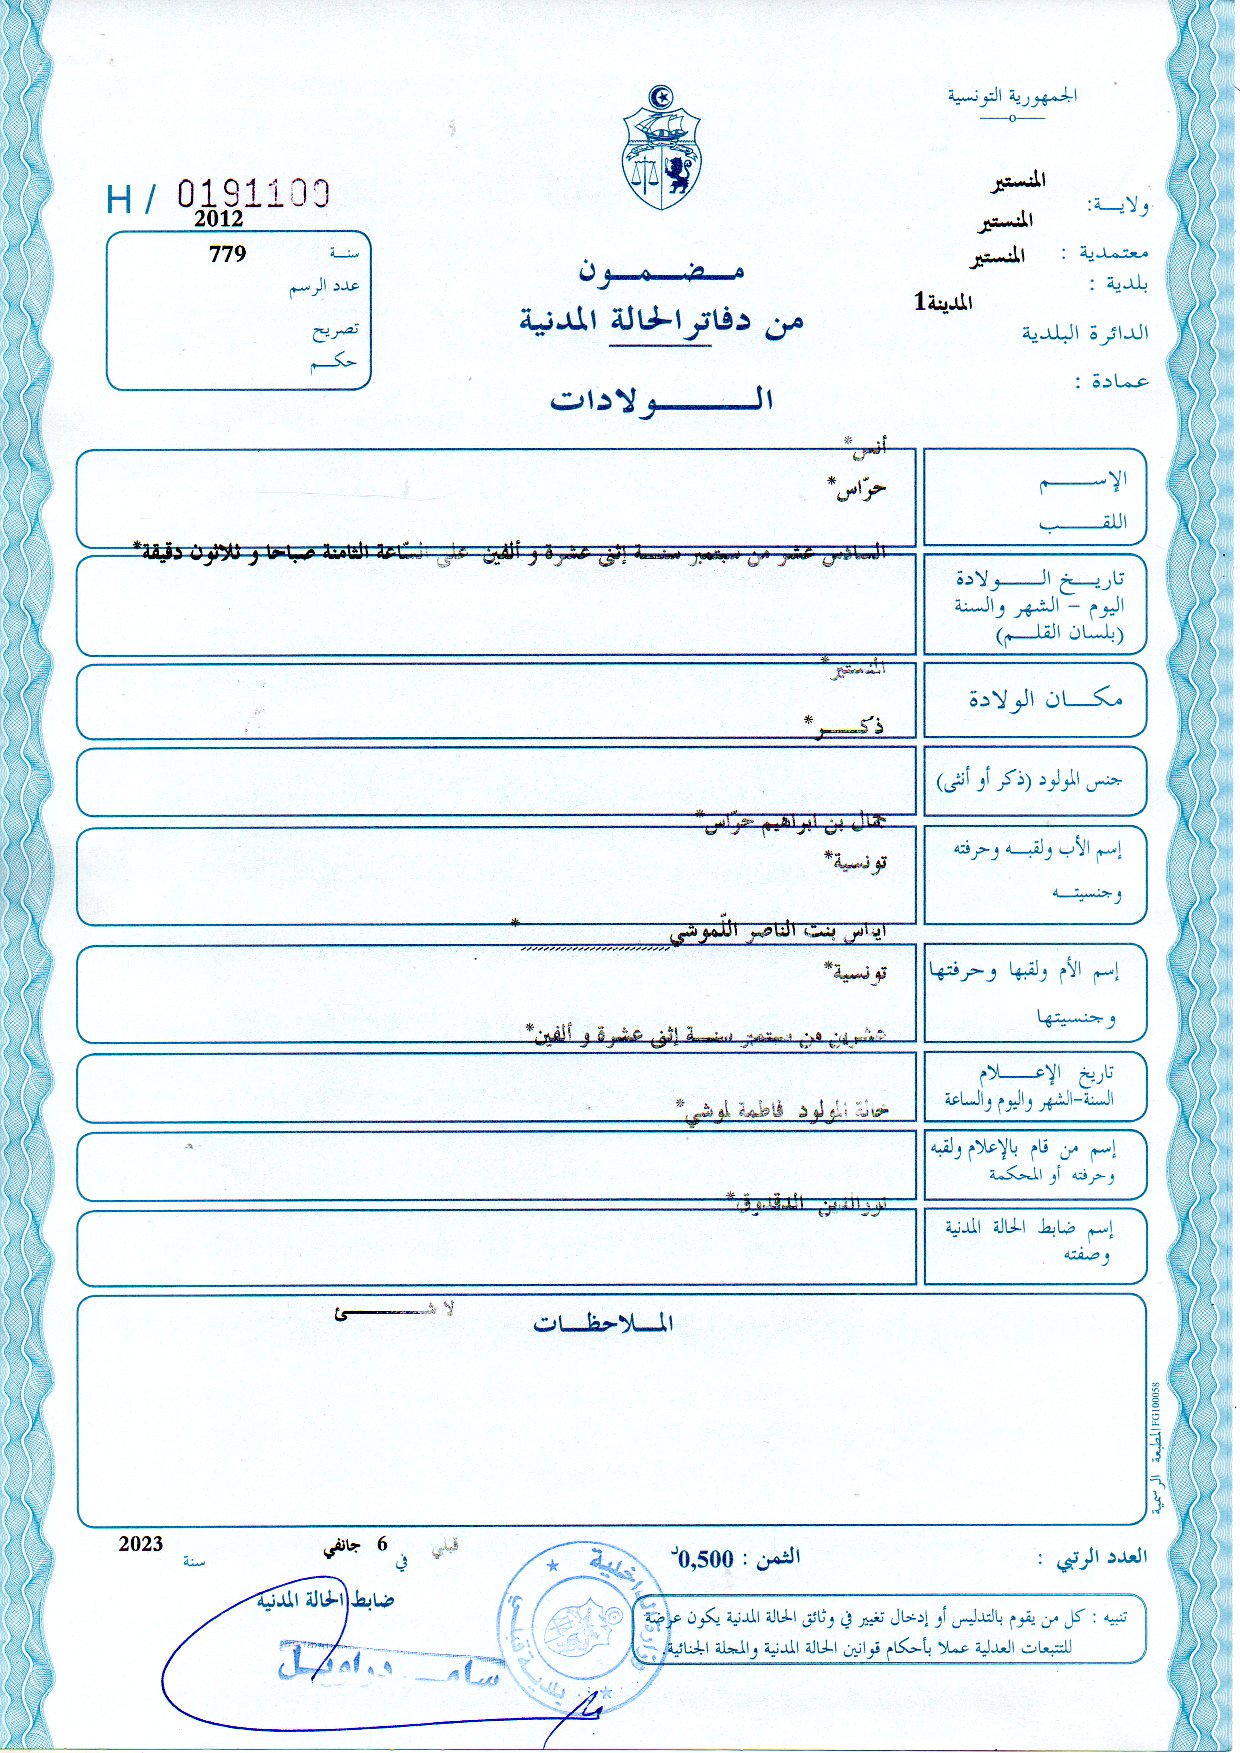 الجمهورية التونسية
المنستير
ولايـــة:
المنستير
معتمدية :
المنستير
بلدية :
المدينة1
الدائرة البلدية
عمادة :
H / 0191100
2012
سنـة
779
عدد الرسم
تصريح
حكــم
مـــضـــمـــــون
من دفاتر الحالة المدنية
الــــــــــولادات
أنس*
الإســـــــم
حرّاس*
اللقـــــــب
السادس عشر من سبتمبر سنـــة إثنى عشرة و ألفين على السّاعة الثامنة صباحا و ثلاثون دقيقة*
تاريـــخ الـــــولادة
اليوم – الشهر والسنة
(بلسان القلـــم)
المنستير*
مكـــان الولادة
ذكـــــر*
جنس المولود (ذكر أو أنثى)
جمال بن ابراهيم حرّاس*
إسم الأب ولقبـــه وحرفته
تونسية*
وجنسيتـــه
ايناس بنت الناصر اللّموشي*
إسم الأم ولقبها وحرفتها
تونسية*
وجنسيتها
عشرين من سبتمبر سنـــة إثنى عشرة و ألفين*
تاريخ الإعـــــلام
السنة-الشهر واليوم والساعة
خالة المولود فاطمة لموشي*
إسم من قام بالإعلام ولقبه
وحرفته أو المحكمة
نورالدين الدقدوق*
إسم ضابط الحالة المدنية
وصفته
لا شـــــــئ
المـــلاحظـــات
المطبعة الرسمية FG100058
العدد الرتبي :
الثمن : 0,500د
قبلي
في
6 جانفي
سنة
2023
ضابط الحالة المدنية
تنبيه : كل من يقوم بالتدليس أو إدخال تغيير في وثائق الحالة المدنية يكون عرضة
للتتبعات العدلية عملا بأحكام قوانين الحالة المدنية والمجلة الجنائية
وزارة الداخلية
بلدية قبلي